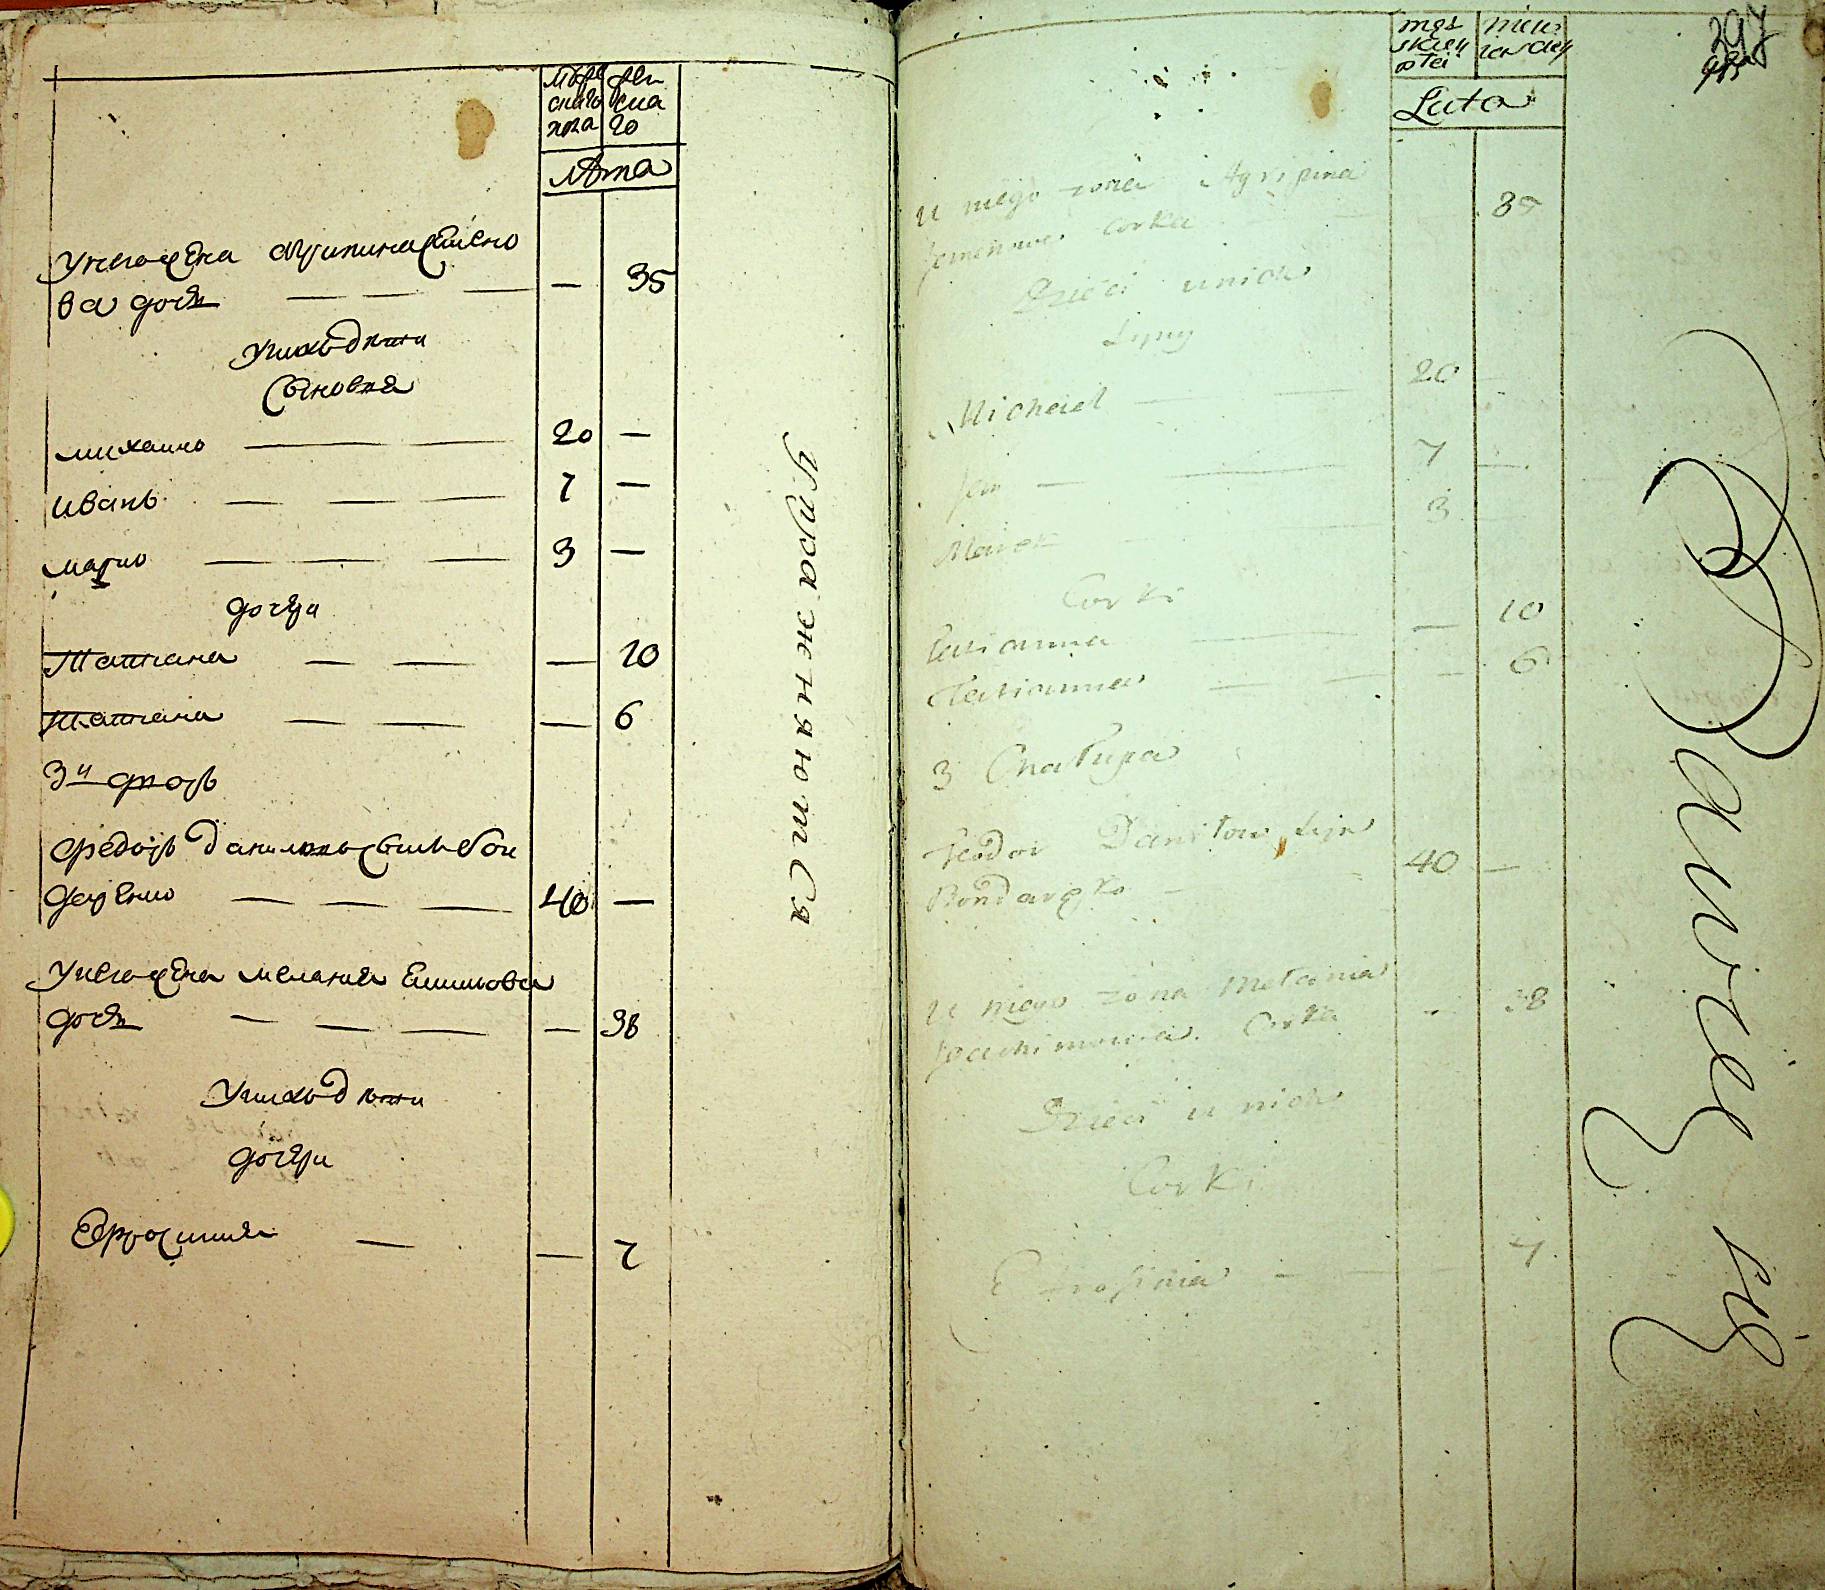 Муже
скаго
пола
жен
ска
го
Лѣта
У него жена Агрипина Семено
ва дочь — — — — 35
У нихъ дѣти
Сыновья
Михайло — — — 20 —
Иванъ — — — 7 —
Марко — — — 3 —
дочери
Татiана — — — 10
Татiана — — — 6
3й дворъ
Федоръ Даниловъ сынъ Бон
даренко — — — 40 —
У него жена Меланiя Екимова
дочь — — — — 38
У нихъ дѣти
дочери
Ефросинiя — — 7
У границя
męs
skiey
płci
niew
iesciey
Lata
297
U niego zona Agripina
Semenowa Corka 35
Dzieci u nich
Syny
Micheiel — — 20 —
Jan — — 7 —
Marek — — 3 —
Corki
Tatianna — — 10
Tatianna — — — 6
3 Chałupa
Feodor Daniłow Syn
Bondaręko — — 40 —
U niego zona Mełania
Joachimowa Corka - 38
Dzieci u nich
Corki
Efrosinia — — 7
się